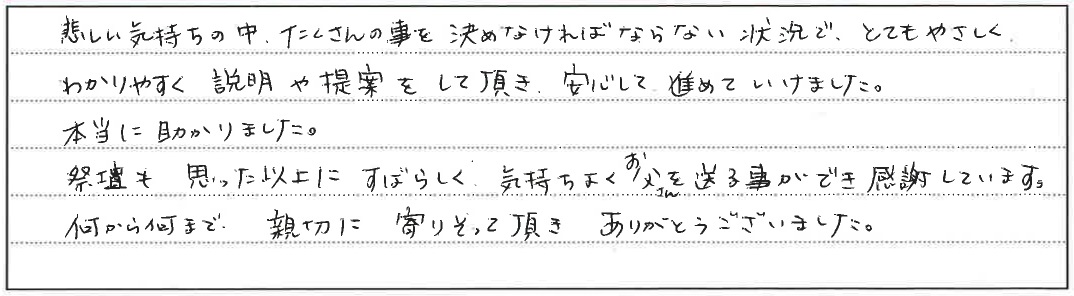 悲しい気持ちの中、たくさんの事を決めなければならない状況で、とてもやさしく、
わかりやすく説明や提案をして頂き、安心して進めていけました。
本当に助かりました。
祭壇も思った以上にすばらしく、気持ちよくお父さんを送る事ができ感謝しています。
何から何まで、親切に寄りそって頂きありがとうございました。